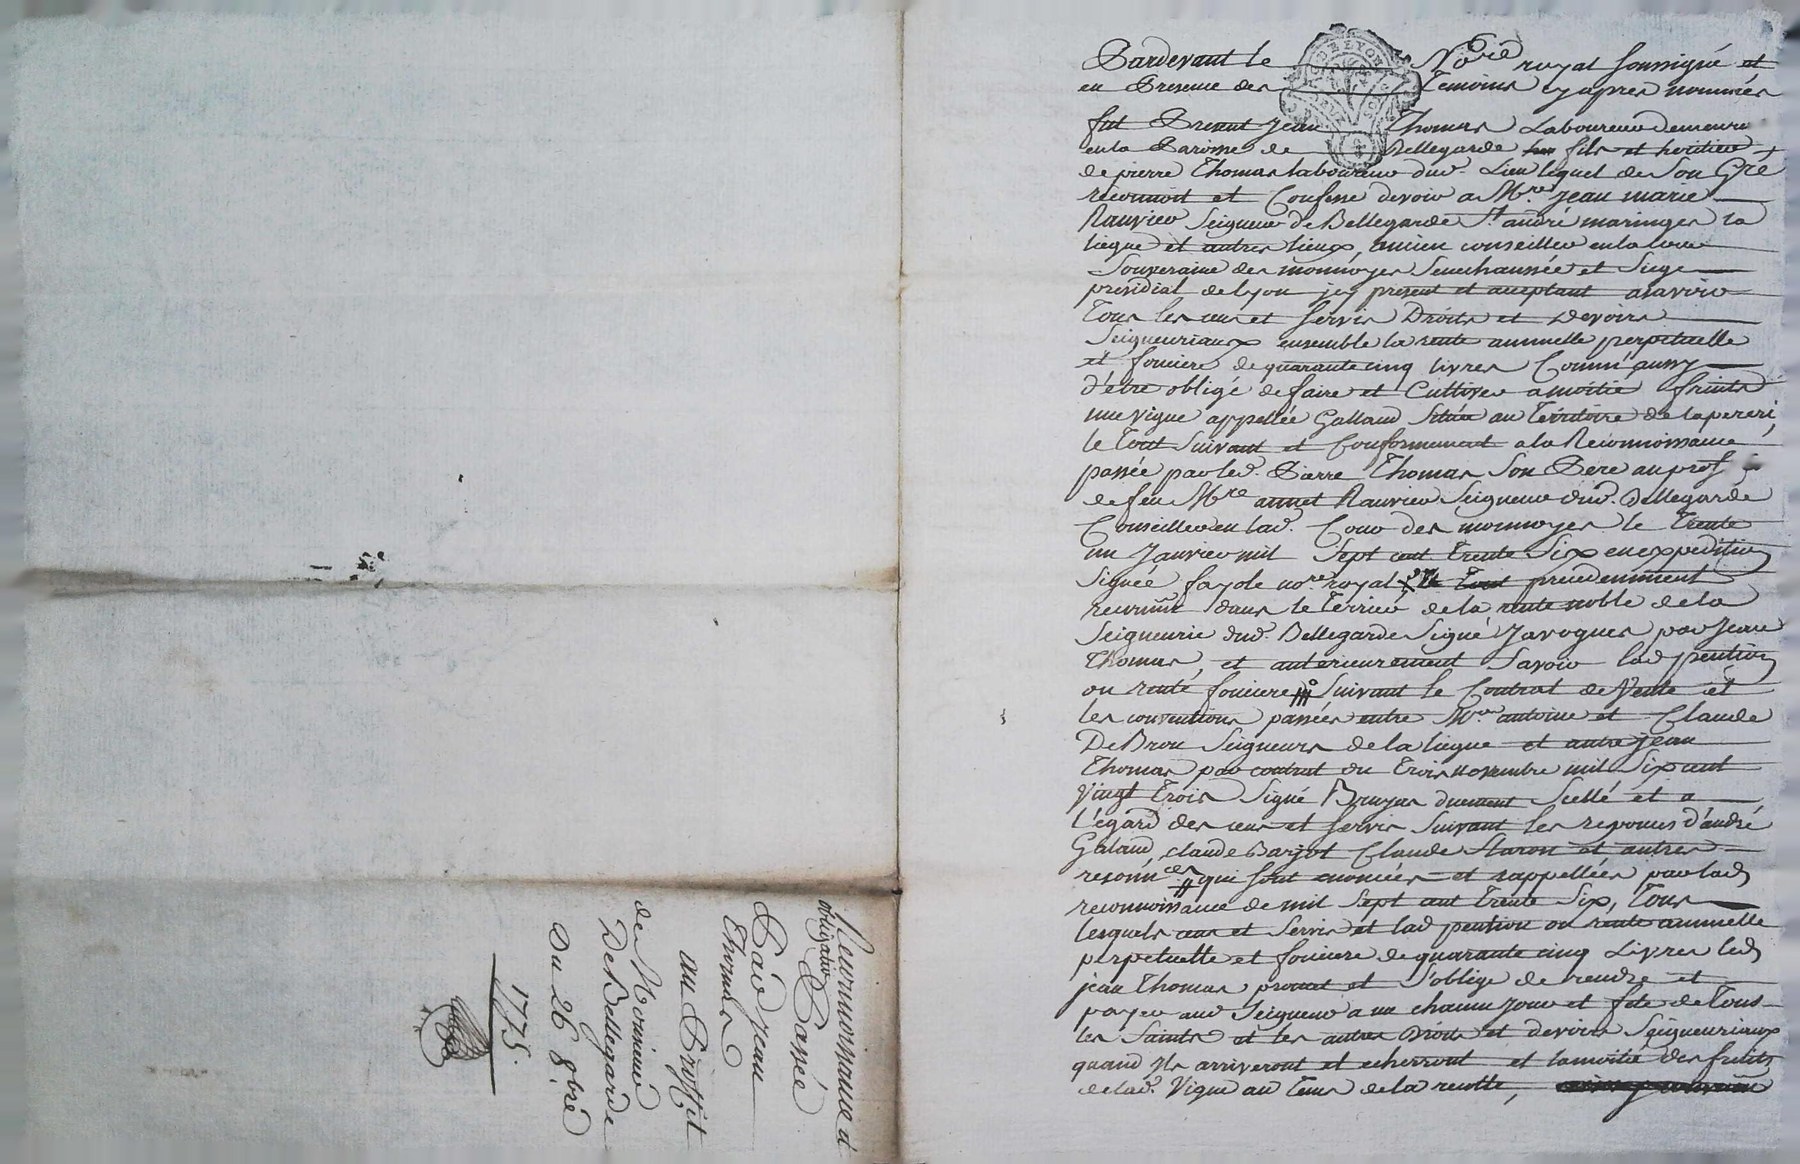 Pardevant le No.re royal soussigné et
en Presence des Temoins cyapres nommés
fut Present Jean Thomas Laboureur demeurt
en la Paroisse de Bellegarde fils et heritier
de pierre Thomas laboureur dud. Lieu lequel de Son Gré
reconnoit et Confesse devoir a M.re jean marie
Rauvier Seigneur de Bellegarde St andré maringes la
liegue et autres lieux, ancien conseiller en la cour
Souveraine des monnoyes Senechaussée et Siege
présidial de Lyon jcy present et acceptant asavoir
Tous les cens et Servis Droits et Devoirs
Seigneuriaux ensemble la rente annuelle perpetuelle
et fonciere de quarante cinq livres Comm'aussy
d'être obligé de faire et Cultiver amoitié fruits
une vigne appellée Galland Située au Territoire de
le Tout Suivant et Conformement a la Reconnoissance
passée par led. Pierre Thomas Son Pere au prof
de feu M.re annet Rauvier Seigneur dud. Bellegarde
Conseiller en lad. Cour des monnoyes le Trente
un Janvier mil Sept cent Trente Six en expedition
Signée fayole no.re royal precedemment
reconnu dans le Terrier de la rente noble de la
Seigneurie dud. Bellegarde Signé Javogues par Jean
Thomas, et anterieurement Savoir lad pention
ou rente fonciere Suivant le Contrat de Vente et
les conventions passées entre M.re antoine et Claude
De Bron Seigneurs de la liegue et autre jean
Thomas par contrat du Trois novembre mil Six cent
Vingt Trois Signé duement Scellé et a
l'egard des cens et Servis Suivant les reponces d'andré
Galand, claude Barjot Claude et autres
qui Sont enoncées et rappellées par lad
reconnoissance de mil Sept cent Trente Six, Tous
lesquels cens et Servis et lad pention ou rente annuelle
perpetuelle et fonciere de quarante cinq Livres led
jean Thomas promet et S'oblige de rendre et
payer aud Seigneur a un chacun jour et fete de Tous
les Saints et les autres Droits et devoirs Seigneuriaux
quand Ils arriveront et echerront et lamoitié des fruits
de lad. Vigne au Tems de la recolte,
Reconnoissance &
obligation Passée
Par jean
Thomas
au Proffit
de Monsieur
De Bellegarde
Du 26 8bre
1775.